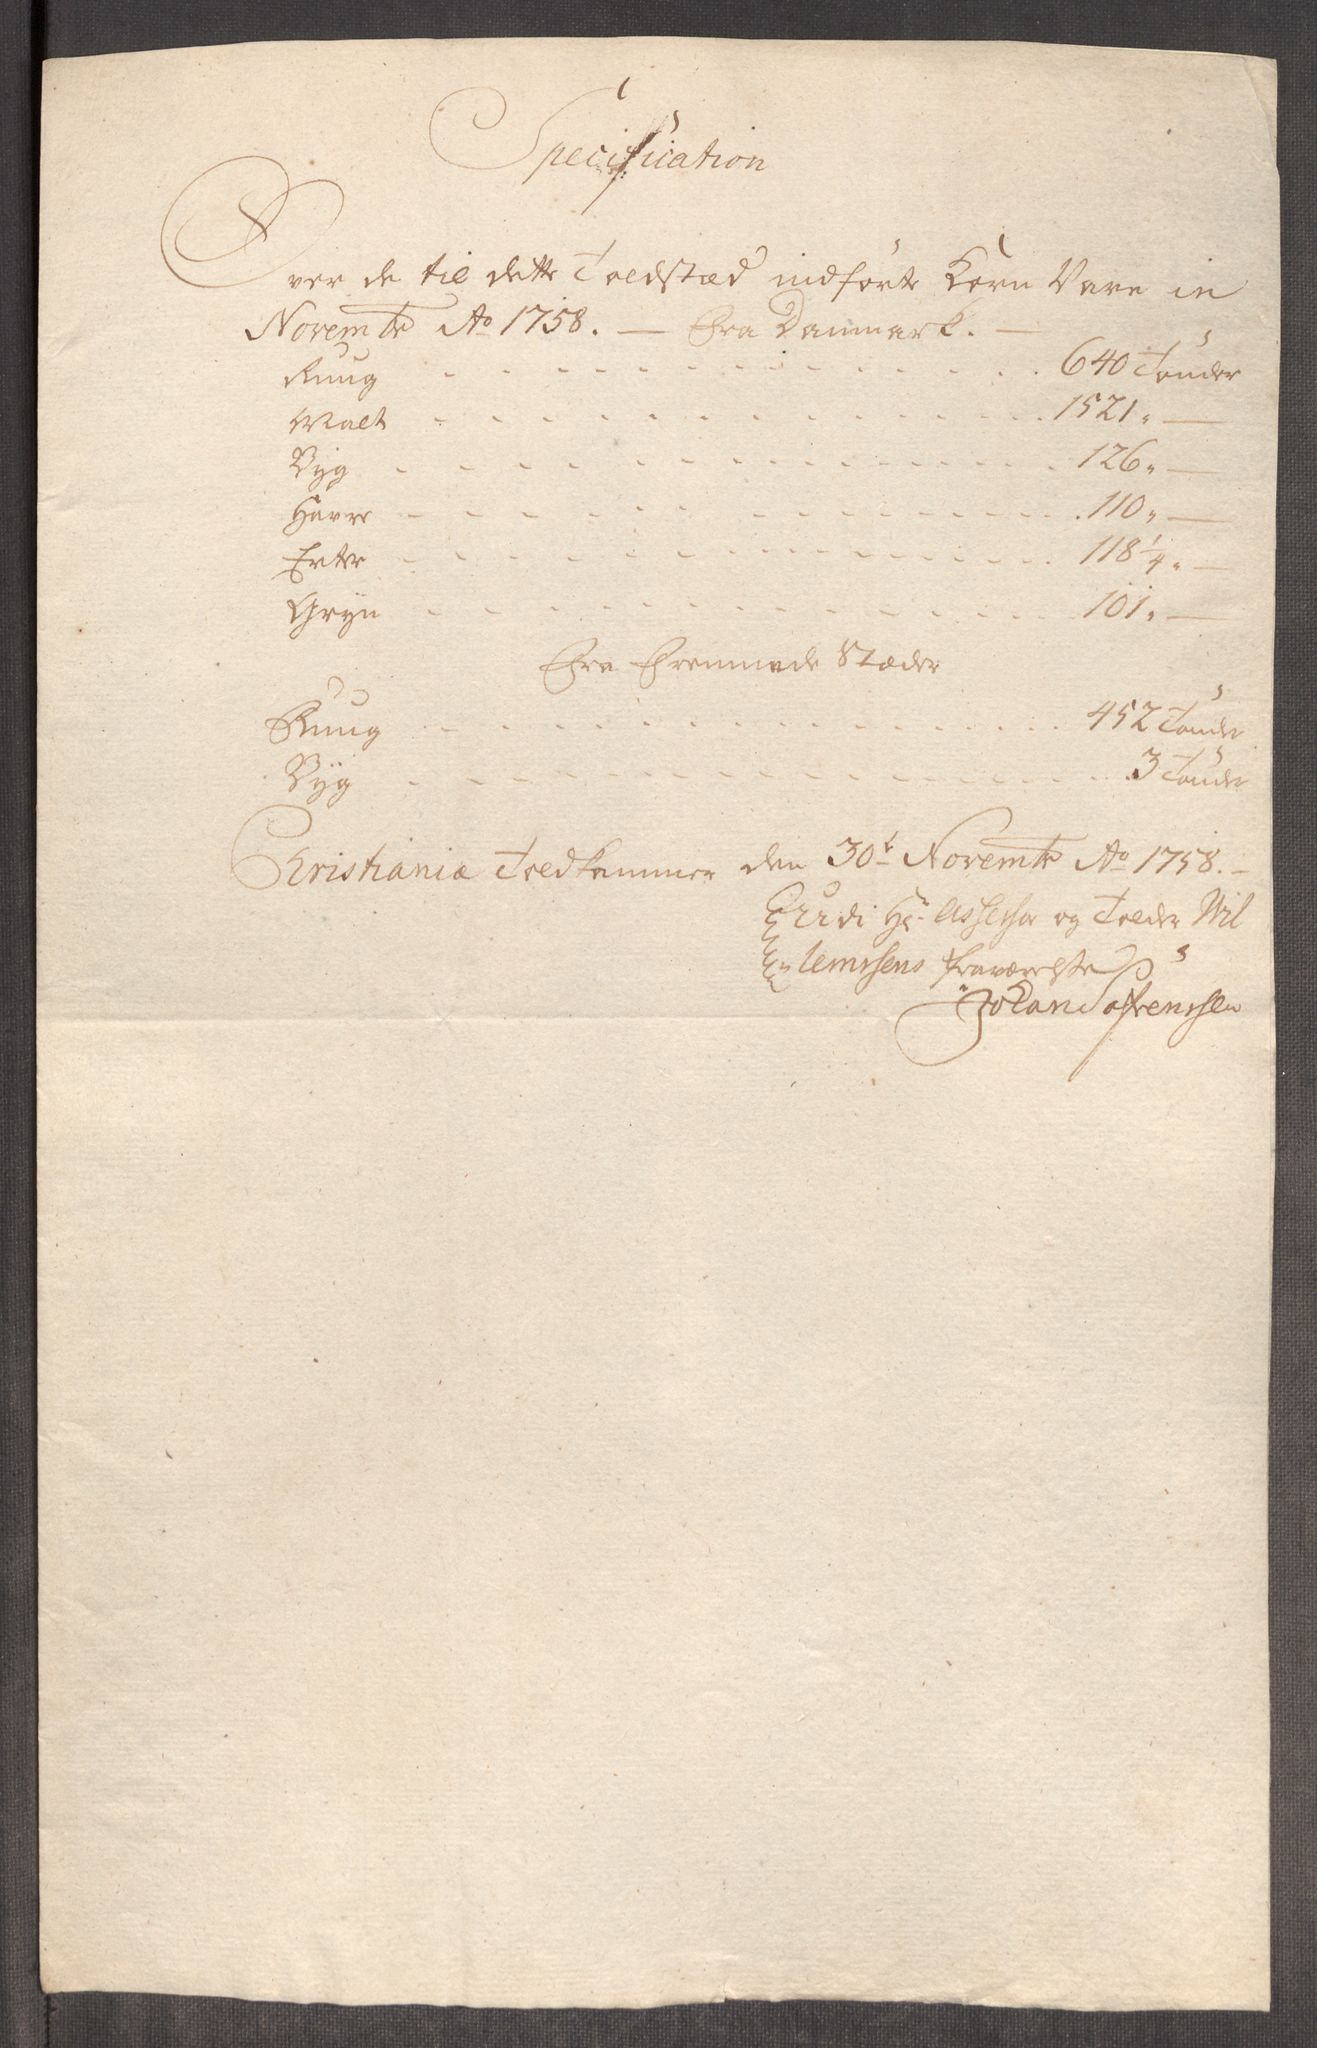 Specification
Over de til dette Toldstæd indførte Korn Vare in
Novembr Ao 1758. — Fra Danmark. —
Ruug 640 Tønder
Malt 1521 „ —
Byg 126 „ —
Havre 110 „ —
Erter 118 1/4 „ —
Gryn 101 „ —
Fra Fremmede Stæder
Ruug 452 Tønder
Byg 3 Tønder
Christiania Toldkammer den 30t Novembr Ao 1758. –
udi Hr Assessor og Tolder Wil
lemssens fraværelse
Johan